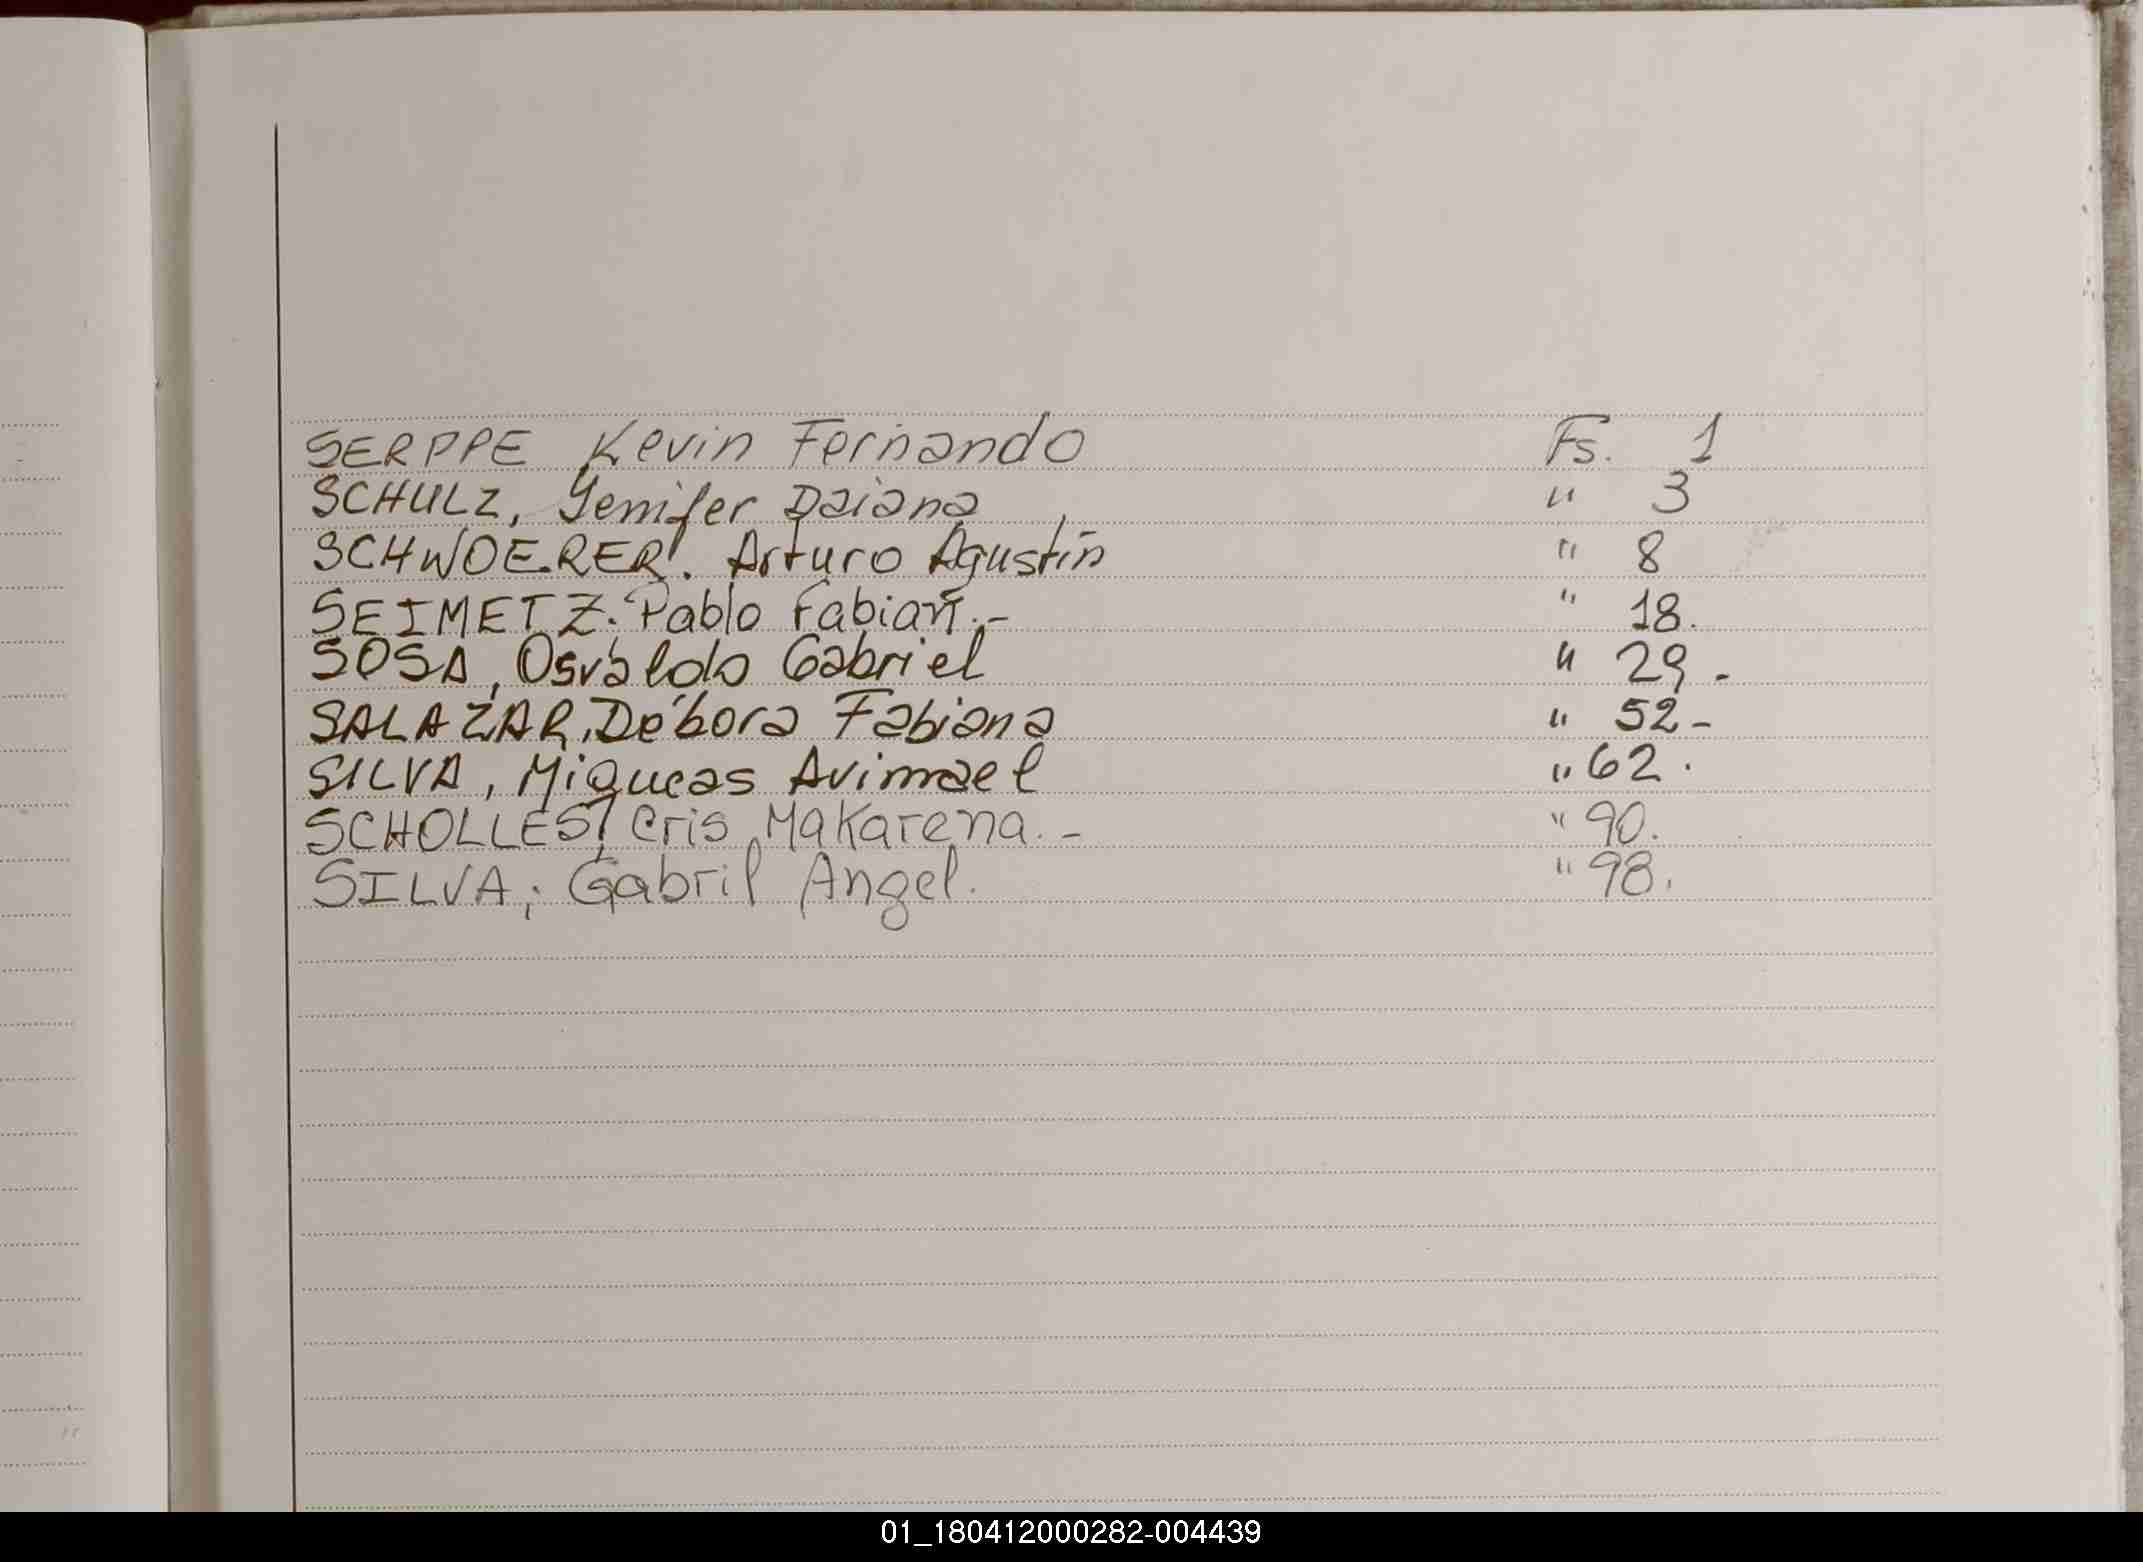 SERPPE Kevin Fernando Fs. 1
SCHULZ, Yenifer Daiana " 3
SCHWOERER. Arturo Agustín " 8
SEIMETZ. Pablo Fabian.- " 18.
SOSA, Osvaldo Gabriel " 29.
SALAZAR, Débora Fabiana " 52-
SILVA, Miqueas Avimael " 62.
SCHOLLES, Cris Makarena.- " 90.
SILVA, Gabril Angel. " 98.
01_180412000282-004439